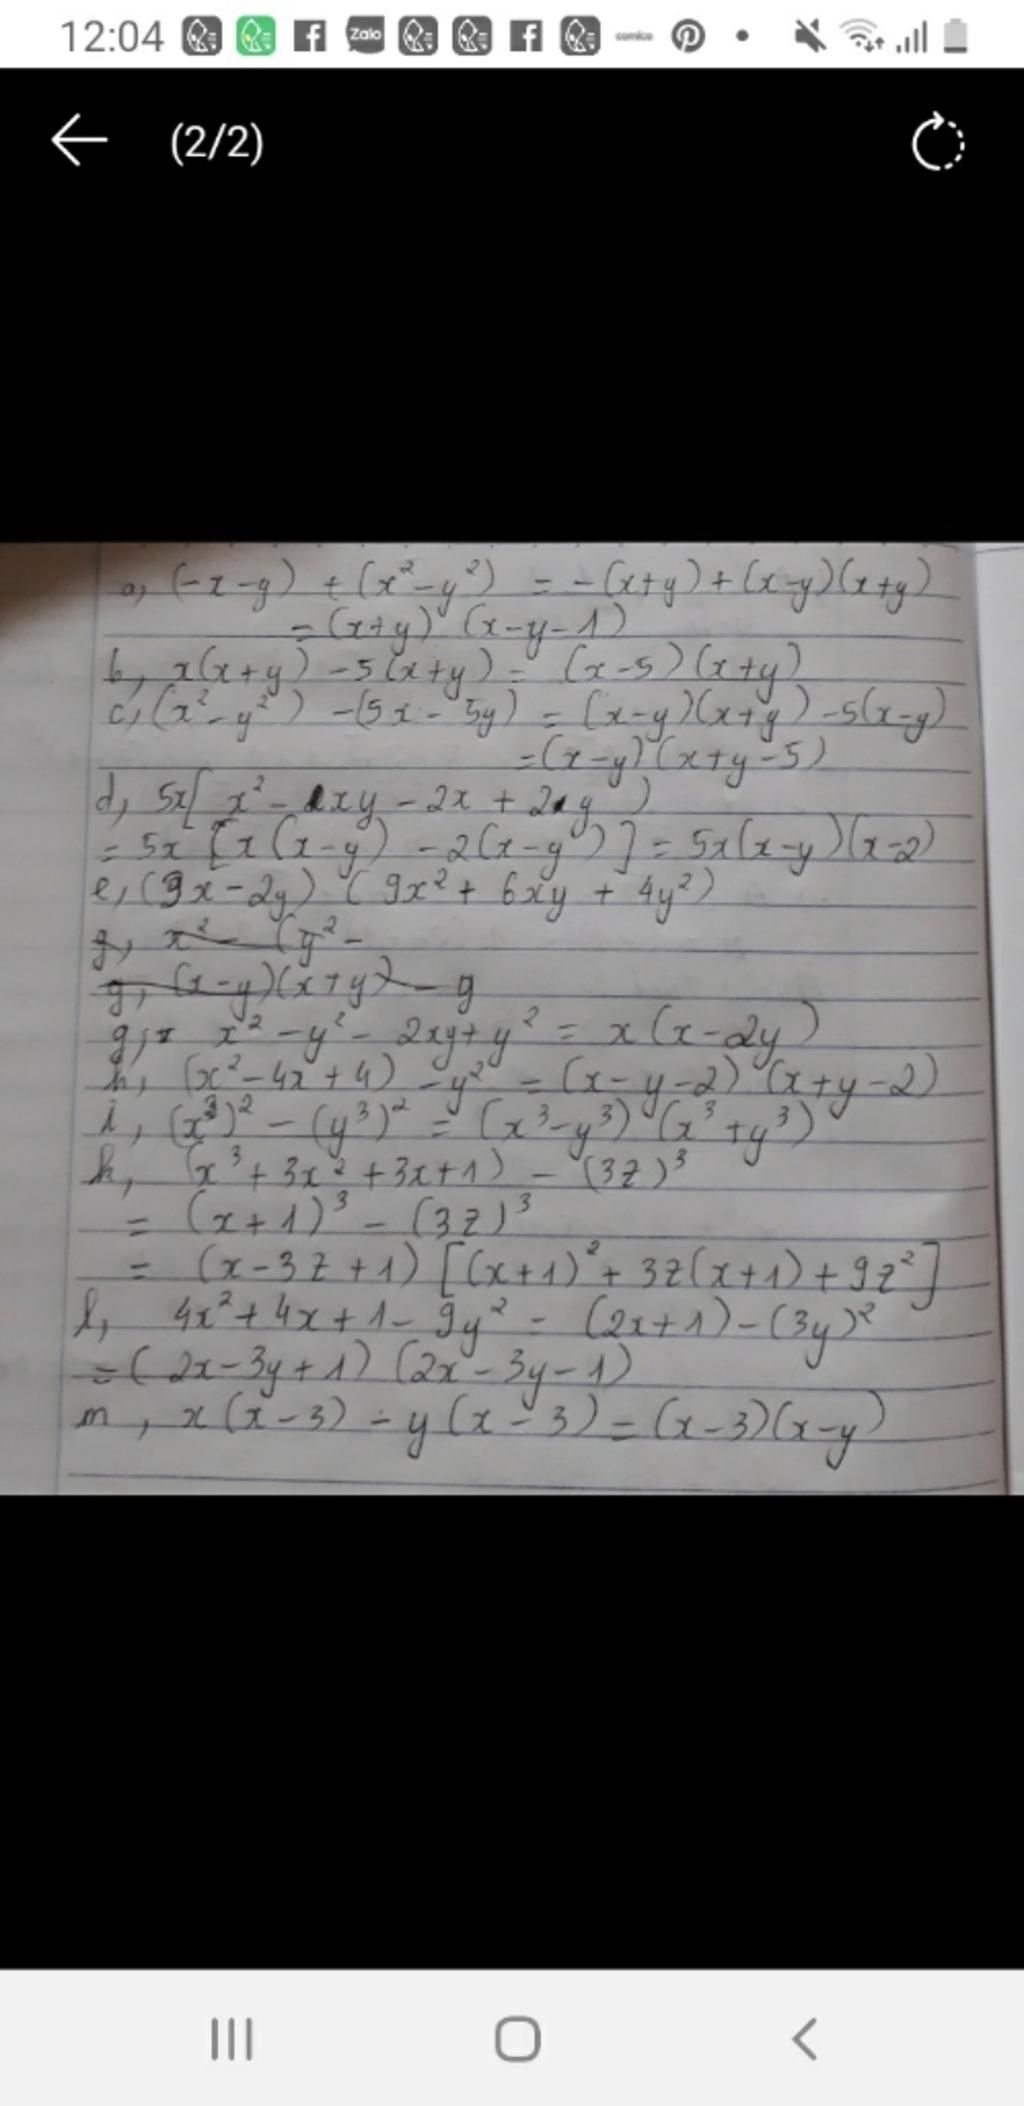 12:04
Zalo
comico
(2/2)
a, (-x-y) + (x²-y²) = -(x+y)+(x-y)(x+y)
= (x+y) (x-y-1)
b, x(x+y) -5(x+y) = (x-5)(x+y)
c, (x²-y²) -(5x-5y) = (x-y)(x+y) -5(x-y)
=(x-y)(x+y-5)
d, 5x( x² - xy - 2x + 2y )
= 5x [x(x-y) -2(x-y)] = 5x(x-y)(x-2)
e, (3x-2y) (9x² + 6xy + 4y²)
g, x² - (y² -
g, (x-y)(x+y) - y
g, x² - y² - 2xy+y² = x(x-2y)
h, (x²-4x+4) -y² = (x-y-2) (x+y-2)
i, (x³)² - (y³)² = (x³-y³) (x³+y³)
k, (x³ + 3x² + 3x+1) - (3z)³
= (x+1)³ - (3z)³
= (x-3z+1) [(x+1)² + 3z(x+1) + 9z²]
l, 4x²+4x+1- 9y² = (2x+1)-(3y)²
=( 2x-3y+1) (2x-3y-1)
m, x(x-3) - y(x-3) = (x-3)(x-y)